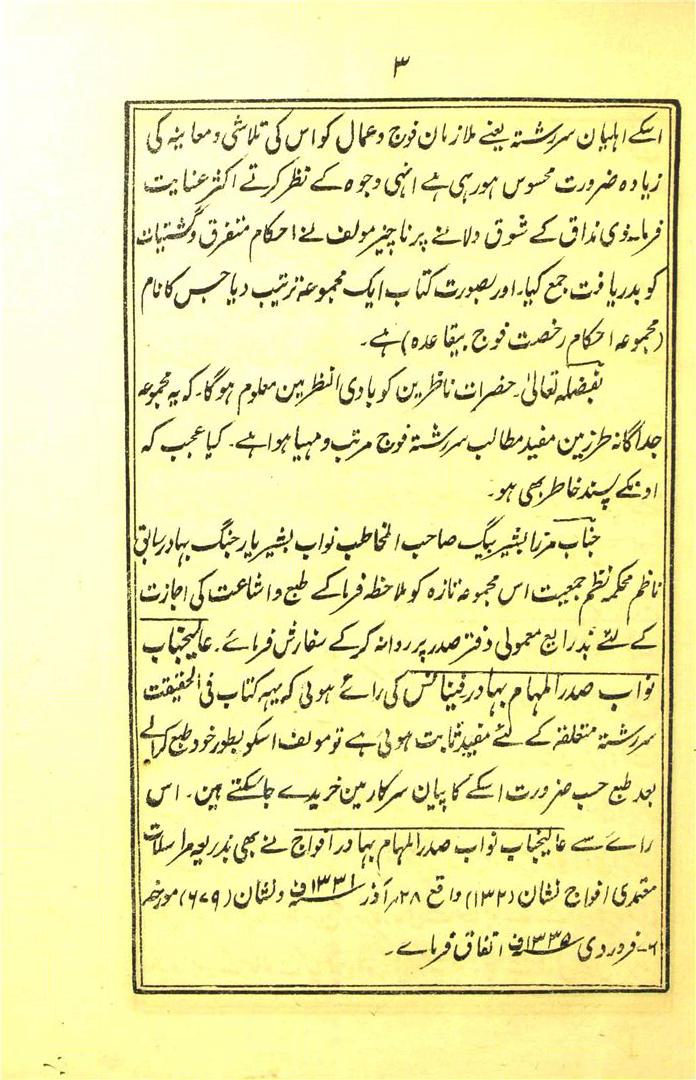 ۳
اسکے اہلیان سررشتہ یعنے ملازمان فوج و عمال کو اس کی تلاشی و معاینہ کی
زیادہ ضرورت محسوس ہو رہی ہے انہی وجوہ کے نظر کرتے اکثر عنایت
فرما۔ ذی مذاق کے شوق دلانے پر ناچیز مولف نے احکام متفرق و گشتیات
کو بدریافت جمع کیا۔ اور بصورت کتاب ایک مجموعہ ترتیب دیا جس کا نام
(مجموعہ احکام رخصت فوج بیقاعدہ) ہے۔
بفضلہ تعالیٰ۔ حضرات ناظرین کو بادی النظر مین معلوم ہوگا۔ کہ یہ مجموعہ
جداگانہ طرز مین مفید مطالب سررشتہ فوج مرتب و مہیا ہوا ہے۔ کیا عجب کہ
اونکے پسند خاطر بھی ہو۔
جناب مرزا بشیر بیگ صاحب المخاطب نواب بشیر یار جنگ بہادر سابق
ناظم محکمہ نظم جمعیت اس مجموعہ تازہ کو ملاحظہ فرما کے طبع و اشاعت کی اجازت
کے لئے بذرایع معمولی دفتر صدر پر روانہ کر کے سفارش فرمائے۔ عالیجناب
نواب صدر المہام بہادر فینانس کی رائے ہوئی کہ یہہ کتاب فی الحقیقت
سررشتہ متعلقہ کے لئے مفید ثابت ہوئی ہے تو مولف اسکو بطور خود طبع کرالے
بعد طبع حسب ضرورت اسکے کاپیان سرکار مین خریدے جاسکتے ہین۔ اس
رائے سے عالیجناب نواب صدر المہام بہادر افواج نے بھی بذریعہ مراسلات
معتمدی افواج نشان (۱۳۲) واقع ۲۸؍ آذر ۱۳۳۱ف و نشان (۶۷۹) مورخہ
۶۔ فروردی ۱۳۳۵ف اتفاق فرمائے۔